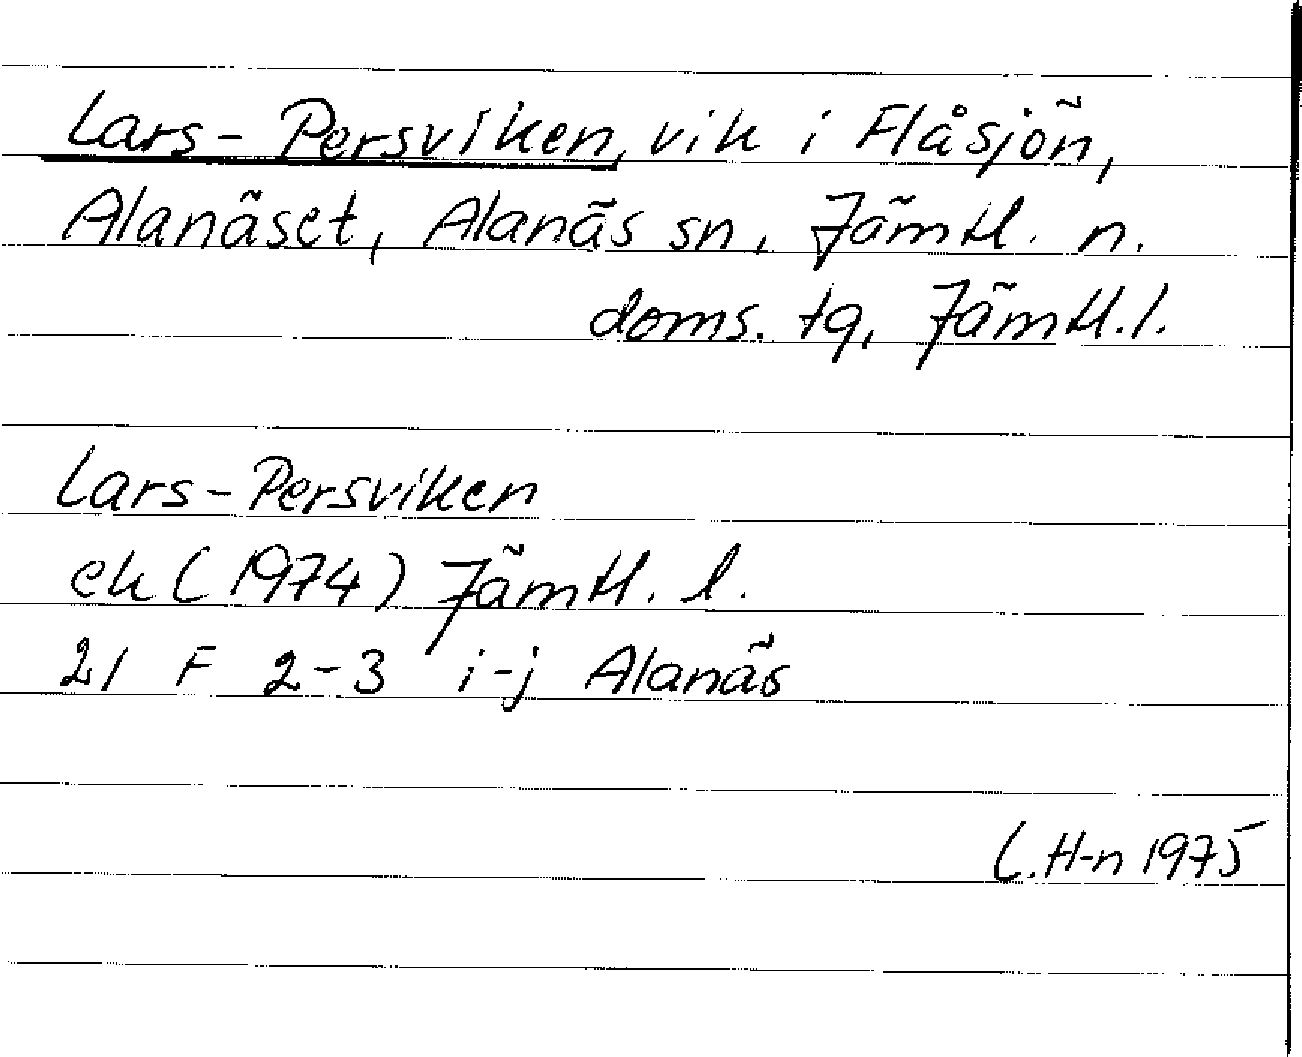 Lars-Persviken, vik i Flåsjön,
Alanäset, Alanäs sn, Jämtl. n.
doms. tg, Jämtl.l.
Lars-Persviken
ek (1974) Jämtl. l.
21 F 2-3 i-j Alanäs
L.H-n 1975